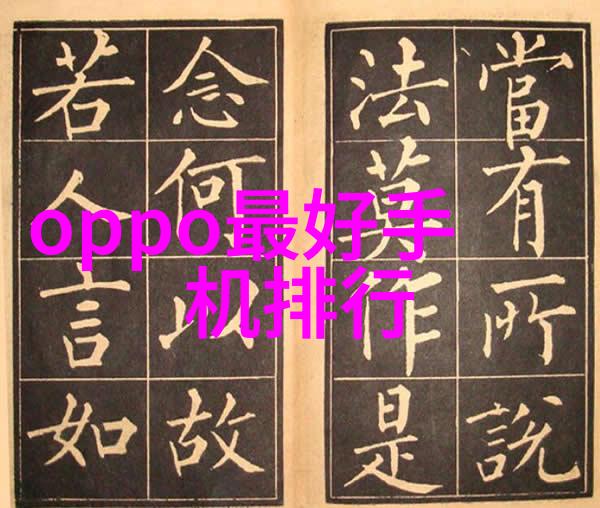 當有所說
法莫作是
念何以故
若人言如
oppo最好手
机排行